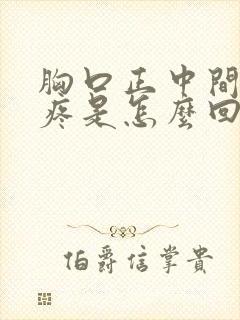 胸口正中間
疼是怎麼回
伯爵信掌貴